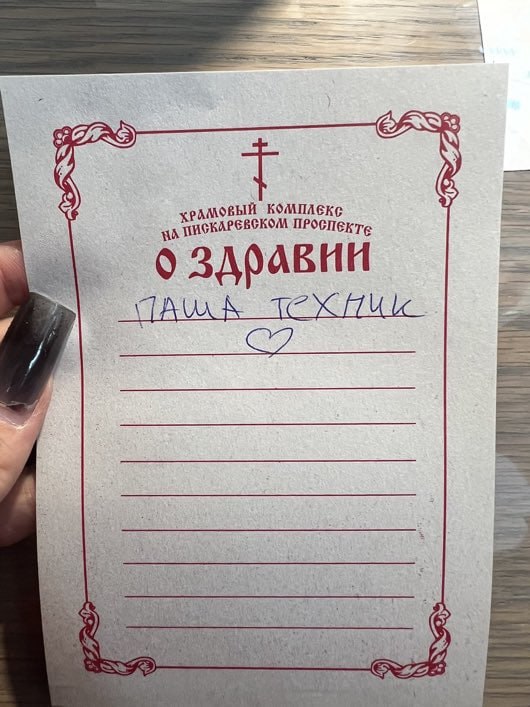 ХРАМОВЫЙ КОМПЛЕКС
НА ПИСКАРЕВСКОМ ПРОСПЕКТЕ
О ЗДРАВИИ
ПАША ТЕХНИК